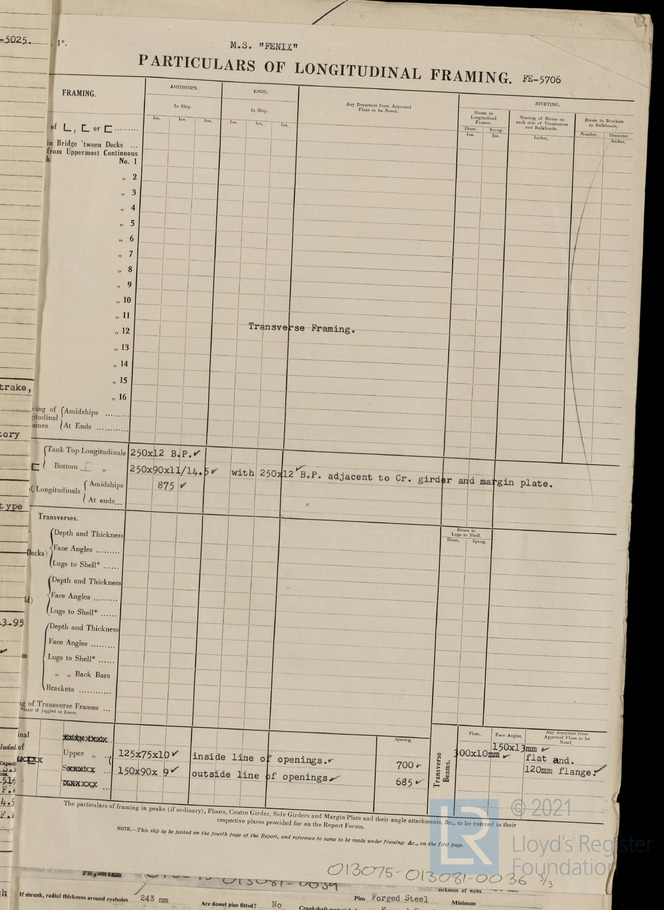 -5025.
1*.
M.S. "FENIX"
PARTICULARS OF LONGITUDINAL FRAMING. FE-5706
FRAMING.
AMIDSHIPS.
ENDS.
Any Departure from Approved Plans to be Noted.
RIVETING.
In Ship.
In Ship.
Rivets in Longitudinal Frames.
Spacing of Rivets on each side of Transverses and Bulkheads.
Rivets in Brackets to Bulkheads.
Ins. Ins. Ins. Ins. Ins. Ins.
Diam. Spcng.
Ins. Ins.
Inches.
Number. Diameter.
Inches.
of L, [ or [
in Bridge 'tween Decks ...
from Uppermost Continuous
No. 1
„ 2
„ 3
„ 4
„ 5
„ 6
„ 7
„ 8
„ 9
„ 10
„ 11
„ 12 Transverse Framing.
„ 13
„ 14
„ 15
„ 16
Amidships
At Ends
Tank Top Longitudinals 250x12 B.P.✓
Bottom „ 250x90x11/14.5✓ with 250x12✓ B.P. adjacent to Cr. girder and margin plate.
Longitudinals Amidships 875 ✓
At ends...
Transverses.
Rivets in Lugs to Shell.
Diam. Spcng.
Depth and Thickness
Face Angles
Decks)
Lugs to Shell*
Depth and Thickness
Face Angles
Lugs to Shell*
Depth and Thickness
Face Angles
Lugs to Shell*
„ „ Back Bars
Brackets
of Transverse Frames ...
Spacing.
Upper „ 125x75x10✓ inside line of openings.✓ 700✓
150x90x 9✓ outside line of openings.✓ 685✓
Transverse Beams.
Plate. Face Angles. Any departure from Approved Plans to be Noted.
300x10mm✓ 150x13mm✓ flat and.
120mm flange.✓
The particulars of framing in peaks (if ordinary), Floors, Centre Girder, Side Girders and Margin Plate and their angle attachments, &c., to be entered in their
respective places provided for on the Report Forms.
NOTE.—This slip to be pasted on the fourth page of the Report, and reference to same to be made under framing, &c., on the first page.
© 2021
Lloyd's Register
Foundation
013075-013081-0036 3/3
If shrunk, radial thickness around eyeholes 243 mm
Are dowel pins fitted? No
Pins Forged Steel
Minimum
trake,
tory
type
3.95